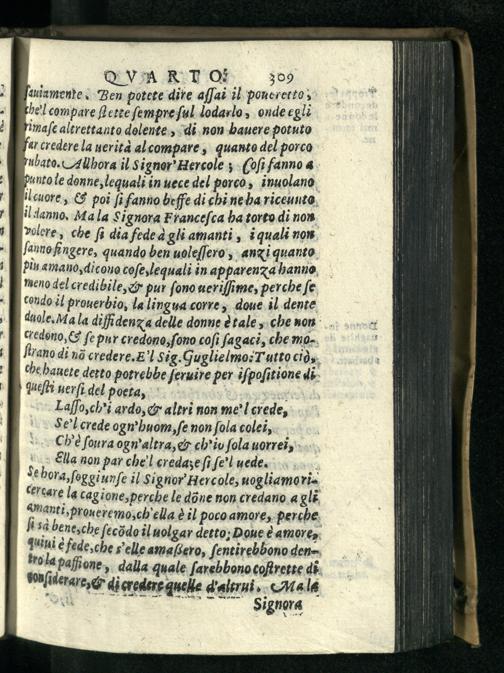 QVARTO. 309
ſauiamente. Ben potete dire aſſai il poueretto,
che'l compare ſtette ſempre ſul lodarlo, onde egli
rimaſe altrettanto dolente, di non hauere potuto
far credere la uerità al compare, quanto del porco
rubato. Allhora il Signor'Hercole; Coſi fanno a
punto le donne, lequali in uece del porco, inuolano
il cuore, & poi ſi fanno beffe di chi ne ha riceuuto
il danno. Ma la Signora Franceſca ha torto di non
volere, che ſi dia fede à gli amanti, i quali non
ſanno fingere, quando ben uoleſſero, anzi quanto
piu amano, dicono coſe, lequali in apparenza hanno
meno del credibile, & pur ſono ueriſſime, perche ſe
condo il prouerbio, la lingua corre, doue il dente
duole. Ma la diffidenza delle donne è tale, che non
credono, & ſe pur credono, ſono coſi ſagaci, che mo-
ſtrano di nō credere. E'l Sig. Guglielmo: Tutto ciò,
che hauete detto potrebbe ſeruire per iſpoſitione di
queſti uerſi del poeta,
Laſſo, ch'i ardo, & altri non me'l crede,
Se'l crede ogn'huom, ſe non ſola colei,
Ch'è ſoura ogn'altra, & ch'io ſola uorrei,
Ella non par che'l creda; e ſi ſe'l uede.
Se hora, ſoggiunſe il Signor'Hercole, uogliamo ri-
cercare la cagione, perche le dōne non credano a gli
amanti, proueremo, ch'ella è il poco amore, perche
ſi sà bene, che ſecōdo il uolgar detto; Doue è amore,
quiui è fede, che s'elle amaßero, ſentirebbono den-
tro la paſſione, dalla quale ſarebbono coſtrette di
conſiderare, & di credere quelle d'altrui. Ma la
Signora